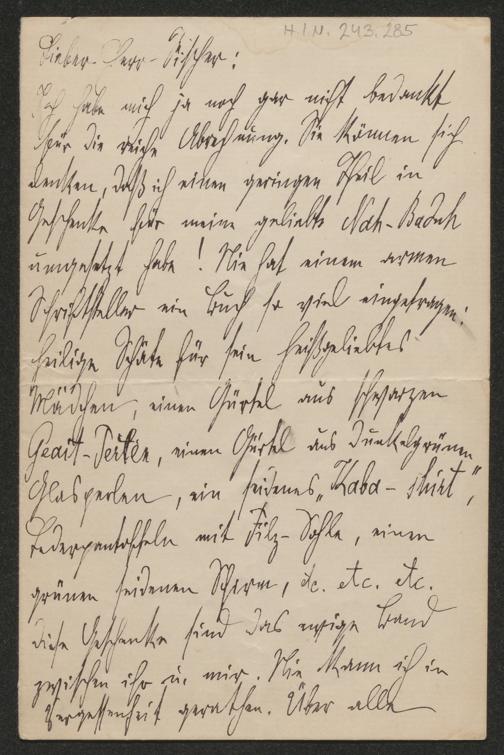 H.I.N. 243.285
Lieber Herr Fischer:
Ich habe mich ja noch gar nicht bedankt
für die reiche Abrechnung. Sie können sich
denken, daß ich einen geringen Theil in
Geschenke für meine geliebte Nah-Baduh
umgesetzt habe! Nie hat einem armen
Schriftsteller ein Buch so viel eingetragen:
heilige Schätze für sein heißgeliebtes
Mädchen, einen Gürtel aus schwarzen
Perlen, einen Gürtel aus dunkelgrünen
Glasperlen, ein seidenes „Kaba-shirt",
Lederpantoffeln mit Filz-Sohle, einen
grünen seidenen Schirm, etc. etc. etc.
diese Geschenke sind das ewige Band
zwischen ihr u. mir. Nie kann ich in
Vergessenheit gerathen. Über alle